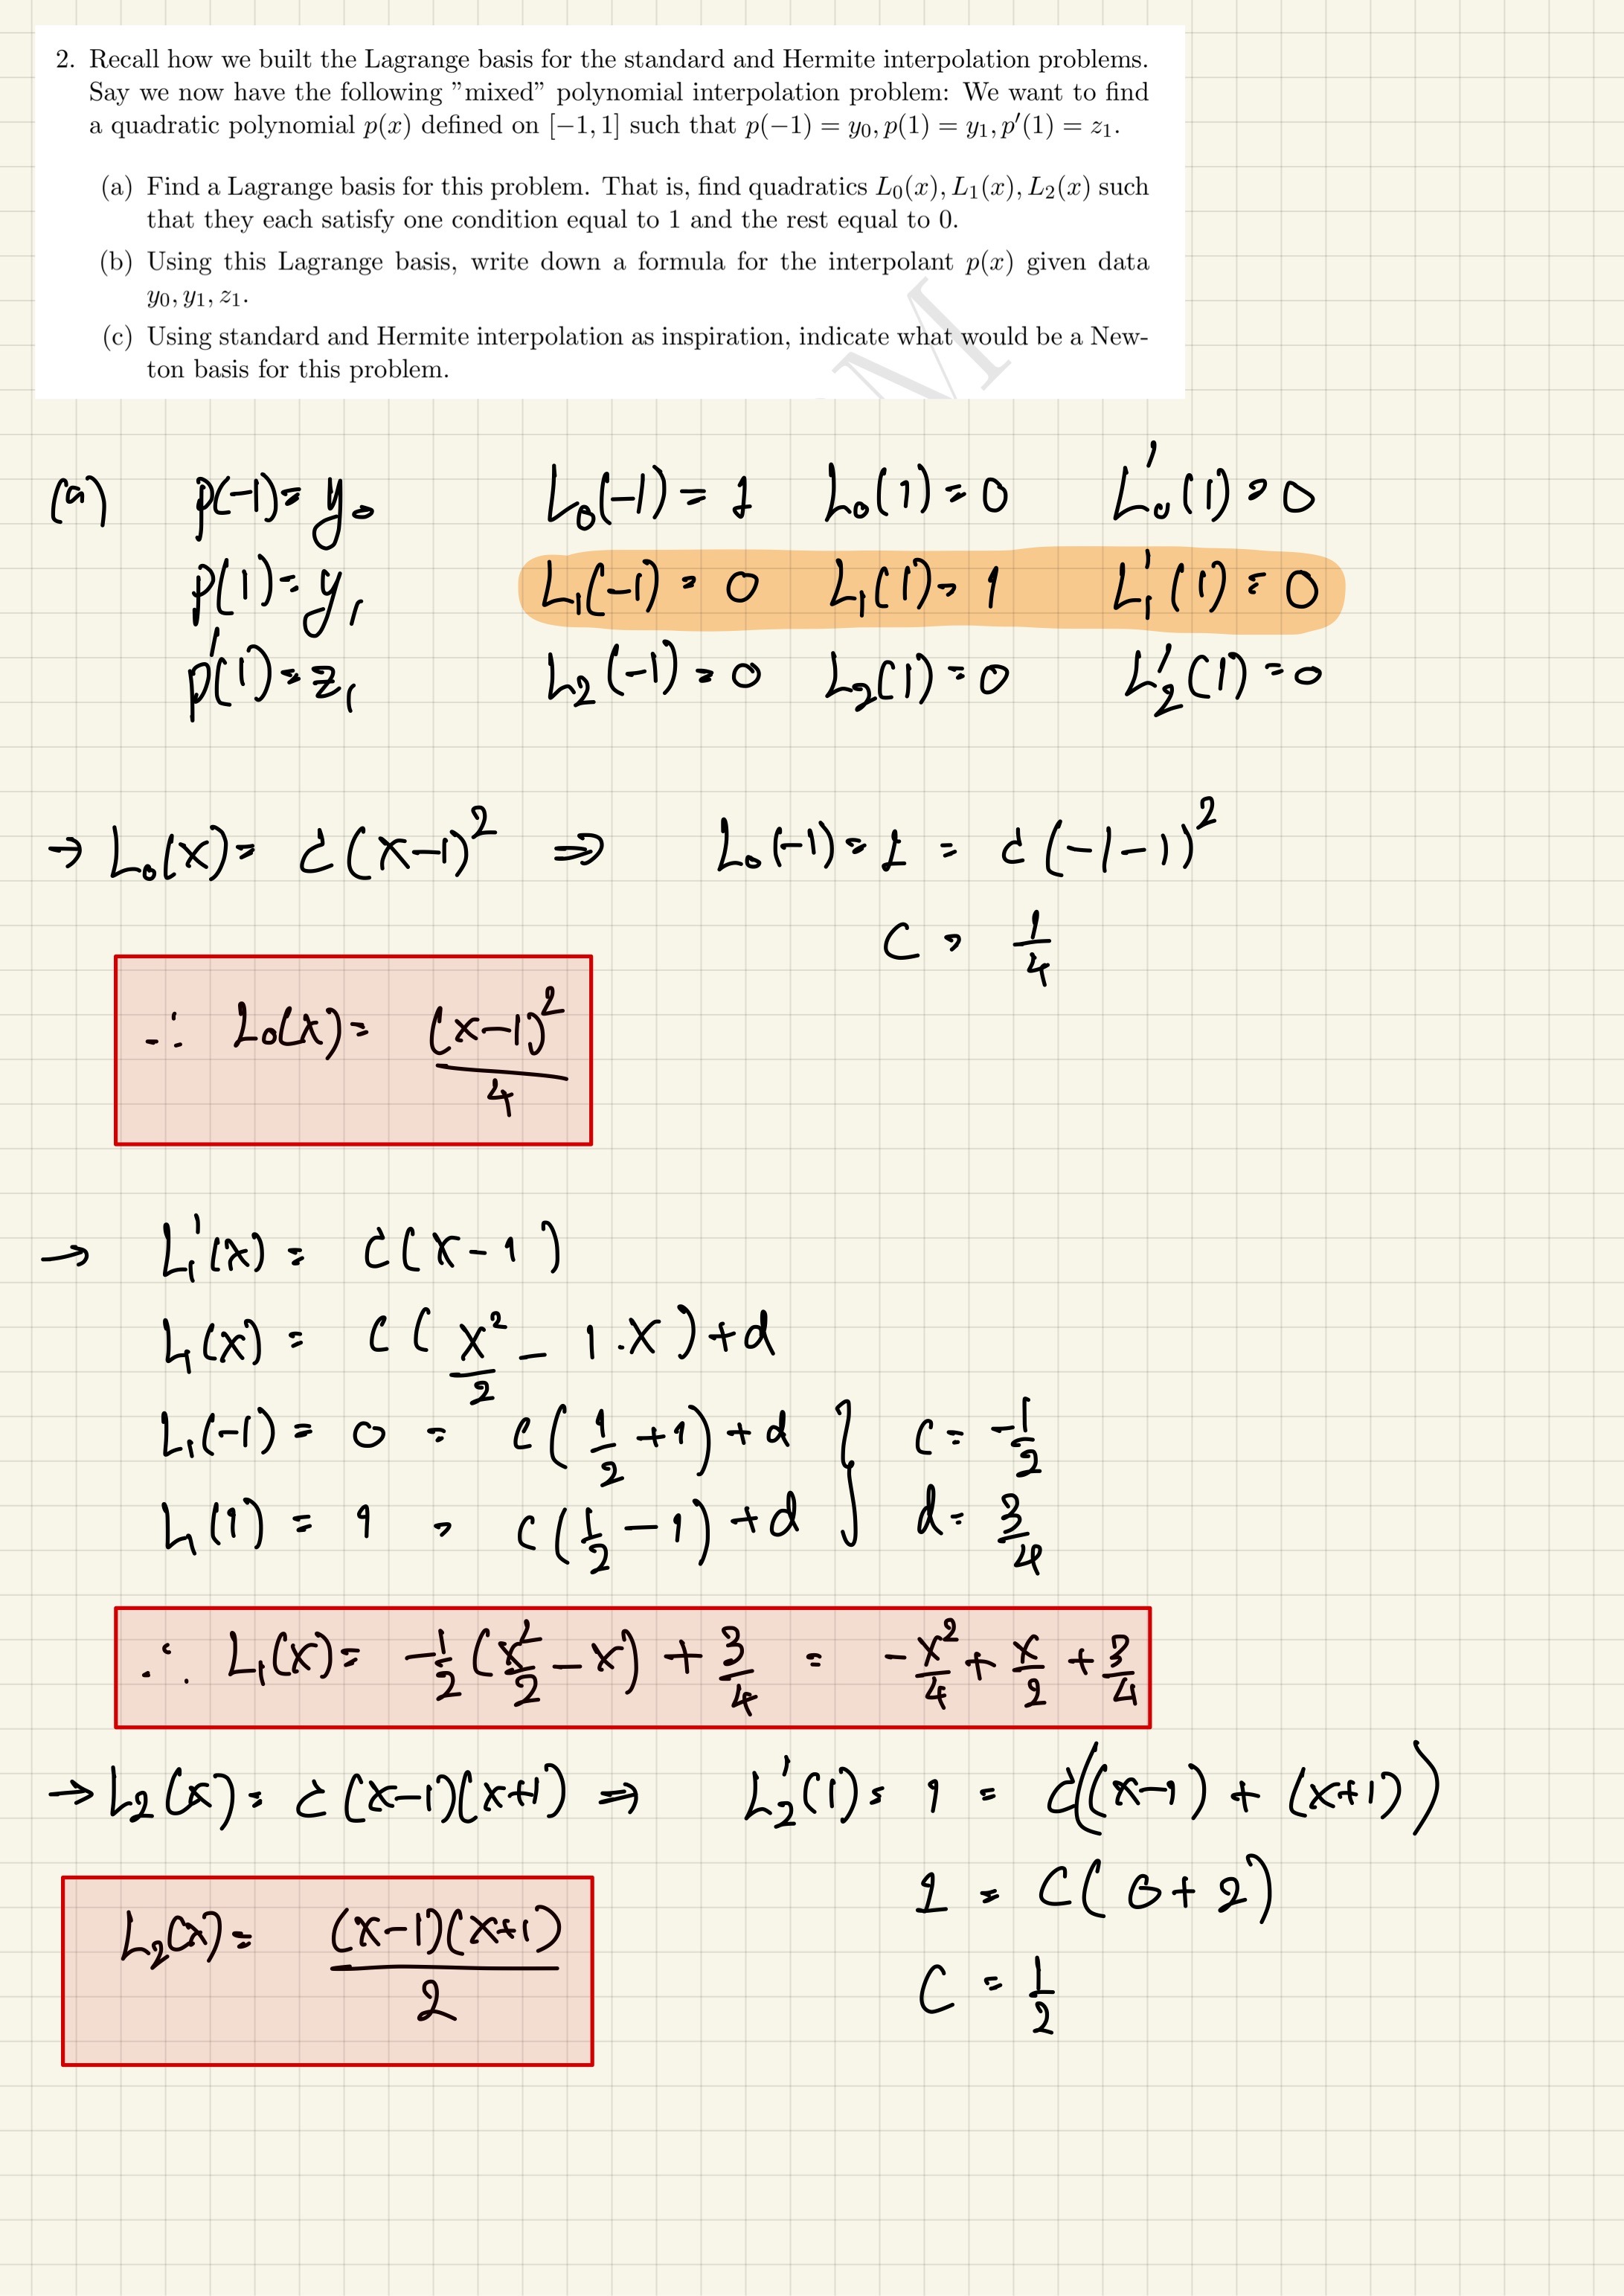 2. Recall how we built the Lagrange basis for the standard and Hermite interpolation problems.
Say we now have the following ”mixed” polynomial interpolation problem: We want to find
a quadratic polynomial p(x) defined on [−1, 1] such that p(−1) = y₀, p(1) = y₁, p′(1) = z₁.
(a) Find a Lagrange basis for this problem. That is, find quadratics L₀(x), L₁(x), L₂(x) such
that they each satisfy one condition equal to 1 and the rest equal to 0.
(b) Using this Lagrange basis, write down a formula for the interpolant p(x) given data
y₀, y₁, z₁.
(c) Using standard and Hermite interpolation as inspiration, indicate what would be a New-
ton basis for this problem.
M
(a) p(-1) = y₀ L₀(-1) = 1 L₀(1) = 0 L₀'(1) = 0
p(1) = y₁ L₁(-1) = 0 L₁(1) = 1 L₁'(1) = 0
p'(1) = z₁ L₂(-1) = 0 L₂(1) = 0 L₂'(1) = 0
→ L₀(x) = c(x-1)² ⇒ L₀(-1) = 1 = c(-1-1)²
c = 1/4
∴ L₀(x) = (x-1)²/4
→ L₁'(x) = c(x-1)
L₁(x) = c(x²/2 - 1.x) + d
L₁(-1) = 0 = c(1/2 + 1) + d } c = -1/2
L₁(1) = 1 = c(1/2 - 1) + d } d = 3/4
∴ L₁(x) = -1/2 (x²/2 - x) + 3/4 = -x²/4 + x/2 + 3/4
→ L₂(x) = c(x-1)(x+1) ⇒ L₂'(1) = 1 = c((x-1) + (x+1))
1 = c(0 + 2)
L₂(x) = (x-1)(x+1)/2
c = 1/2